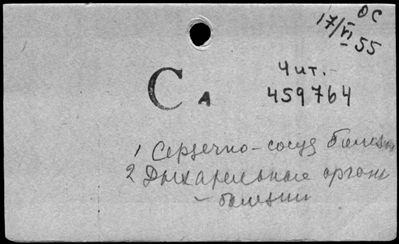 ОС
17/VI 55
Чит. -
С А
459764
1 Сердечно-сосуд болезн
2 Дыхательные органы
- болезни